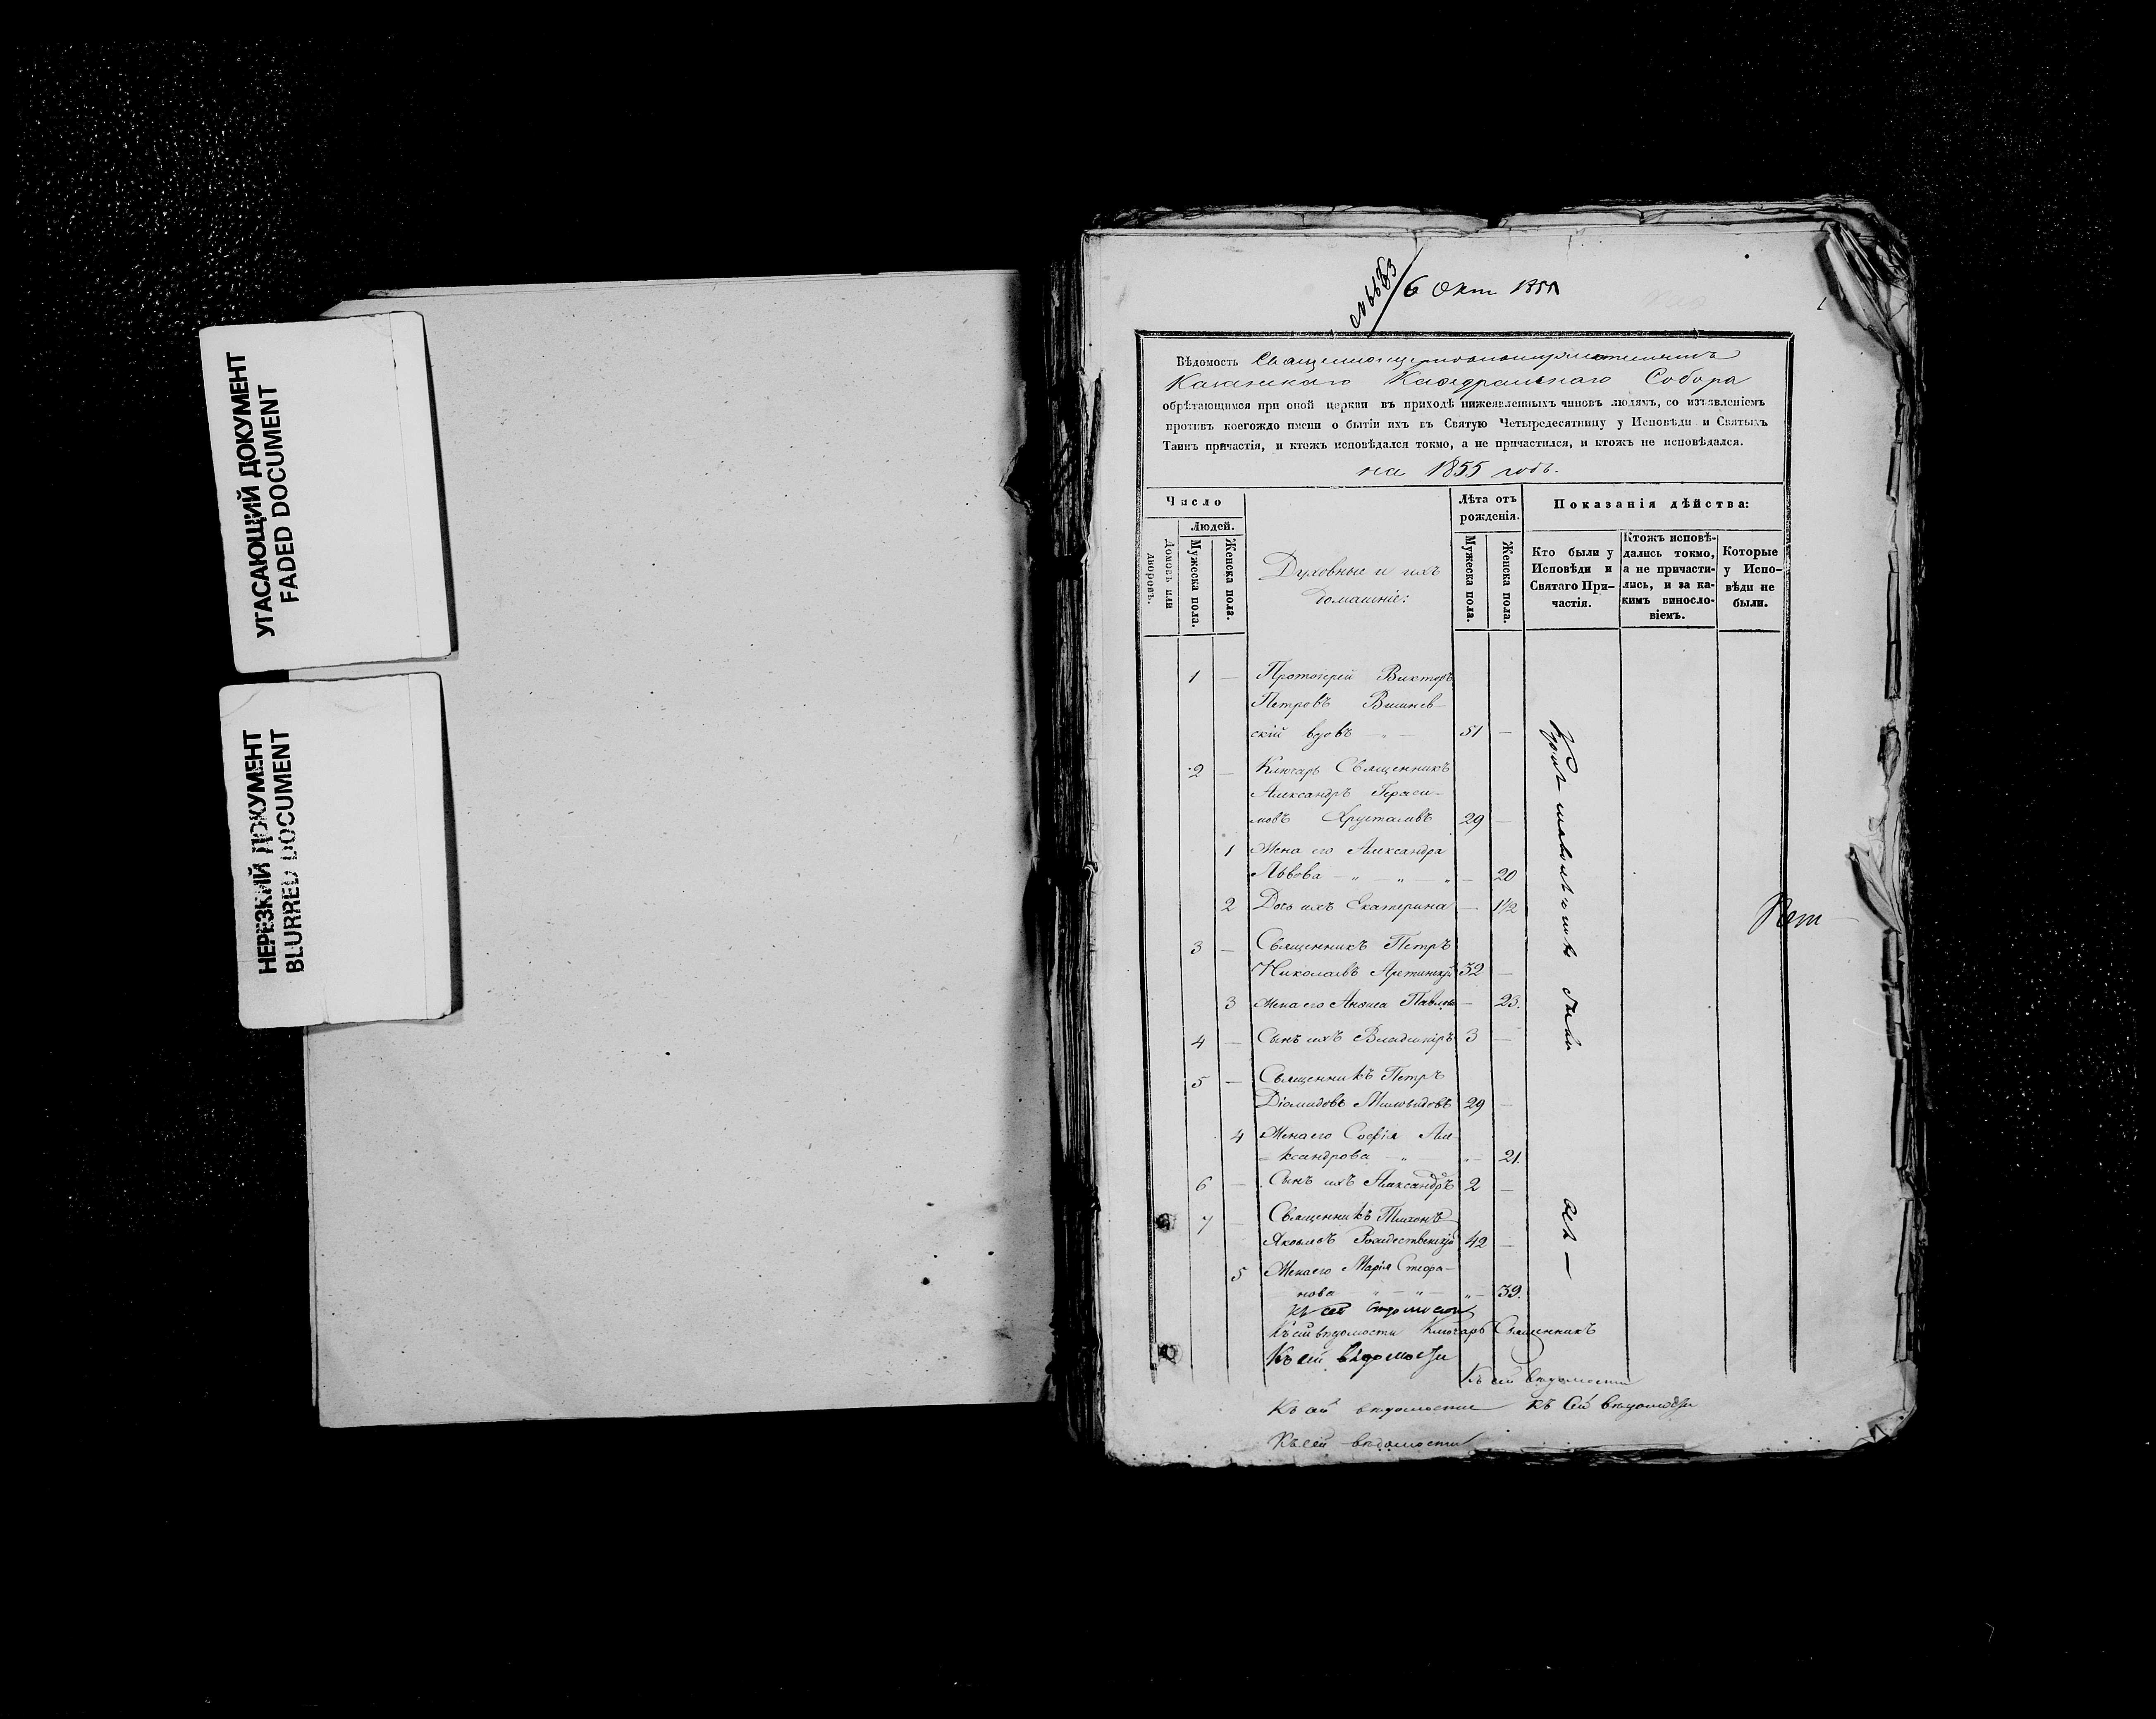 УГАСАЮЩИЙ ДОКУМЕНТ
FADED DOCUMENT
НЕРЕЗКИЙ ДОКУМЕНТ
BLURRED DOCUMENT
6 Окт 1855
Вѣдомость Священноцерковнослужителямъ
Казанскаго Кафедральнаго Собора
обрѣтающимся при оной церкви въ приходѣ нижеявленныхъ чиновъ людямъ, со изъявленіемъ
противъ коегождо имени о бытіи ихъ въ Святую Четыредесятницу у Исповѣди и Святыхъ
Таинъ причастія, и ктожъ исповѣдался токмо, а не причастился, и ктожъ не исповѣдался.
на 1855 годъ.
Число
Людей.
Домовъ или дворовъ.
Мужеска пола.
Женска пола.
Духовные и ихъ
домашніе:
Лѣта отъ
рожденія.
Мужеска пола.
Женска пола.
Показанія дѣйства:
Кто были у
Исповѣди и
Святаго При-
частія.
Ктожъ исповѣ-
дались токмо,
а не причасти-
лись, и за ка-
кимъ винослo-
віемъ.
Которые
у Испо-
вѣди не
были.
1 — Протоіерей Викторъ
Петровъ Вишнев-
скій вдовъ 51 —
2 — Ключарь Священникъ
Александръ Гераси-
мовъ Хрусталевъ 29 —
1 Жена его Александра
Львова — 20
2 Дочь ихъ Екатерина — 1½
3 — Священникъ Петръ
Николаевъ 32 —
3 Жена его Павлова — 23.
4 — Сынъ ихъ Владиміръ 3 —
5 — Священникъ Петръ
Діомидовъ Миловидовъ 29 —
4 Жена его Софія Але-
ксандрова — 21.
6 — Сынъ ихъ Александръ 2 —
7 — Священникъ Тихонъ
Яковлевъ Рождественскій 42 —
5 Жена его Марія Стефа-
нова — 39.
были
всѣ —
Къ сей вѣдомости
Къ сей вѣдомости Ключарь Священникъ
Къ сей вѣдомости
Къ сей вѣдомости
Къ сей вѣдомости Къ сей вѣдомости
Къ сей вѣдомости